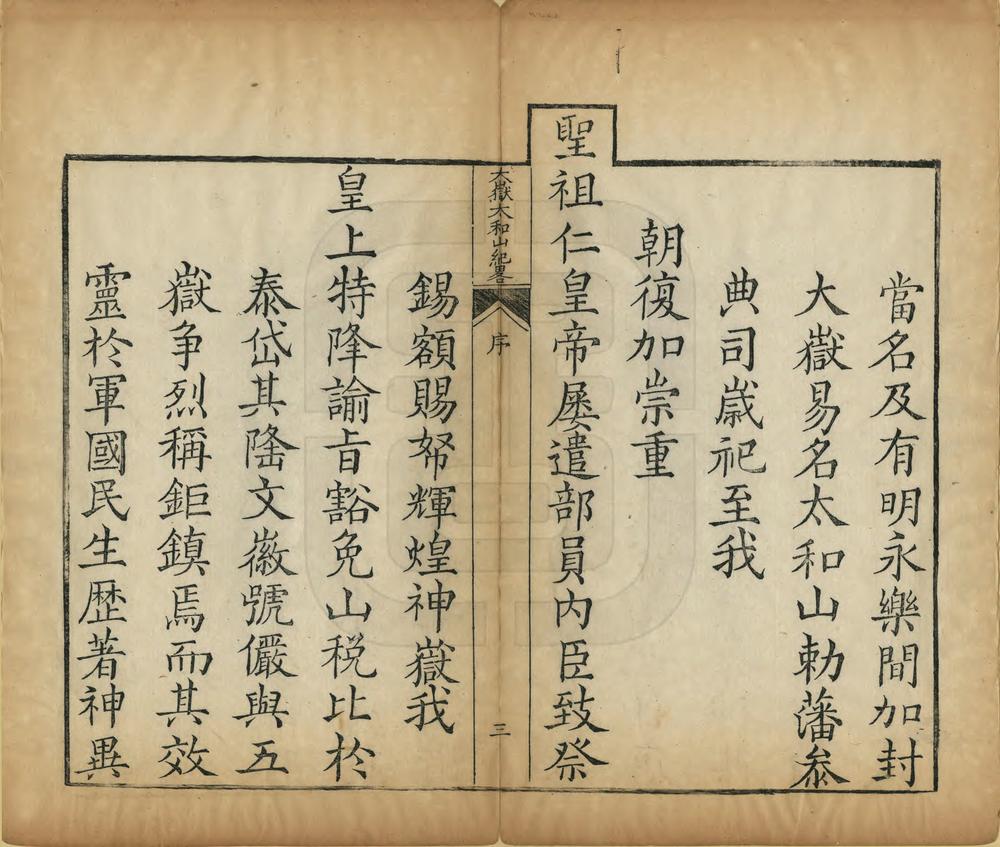 當名及有明永樂間加封
大嶽易名太和山勅藩叅
典司歲祀至我
朝復加崇重
聖祖仁皇帝屡遣部員内臣致祭
大嶽太和山紀畧
序
三
錫額賜帑輝煌神嶽我
皇上特降諭旨豁免山税比於
泰岱其隆文徽號儼與五
嶽争烈稱鉅鎮焉而其效
靈於軍國民生歷著神異